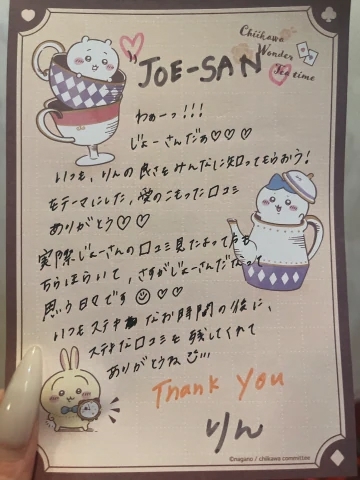 Chiikawa
Wonder
Tea time
"JOE-SAN
わぁーっ!!!
じょーさんだぁ♡♡♡
いつも、りんの良さをみんなに知ってもらおう!
をテーマにした、愛のこもった口コミ
ありがとう♡♡
実際じょーさんの口コミ見たよって方も
ちらほらいて、さすがじょーさんだなって
思う日々です☺♡♡
いつもステキなお時間の後に、
ステキな口コミを残してくれて
ありがとうね
Thank You
りん
©nagano / chiikawa committee